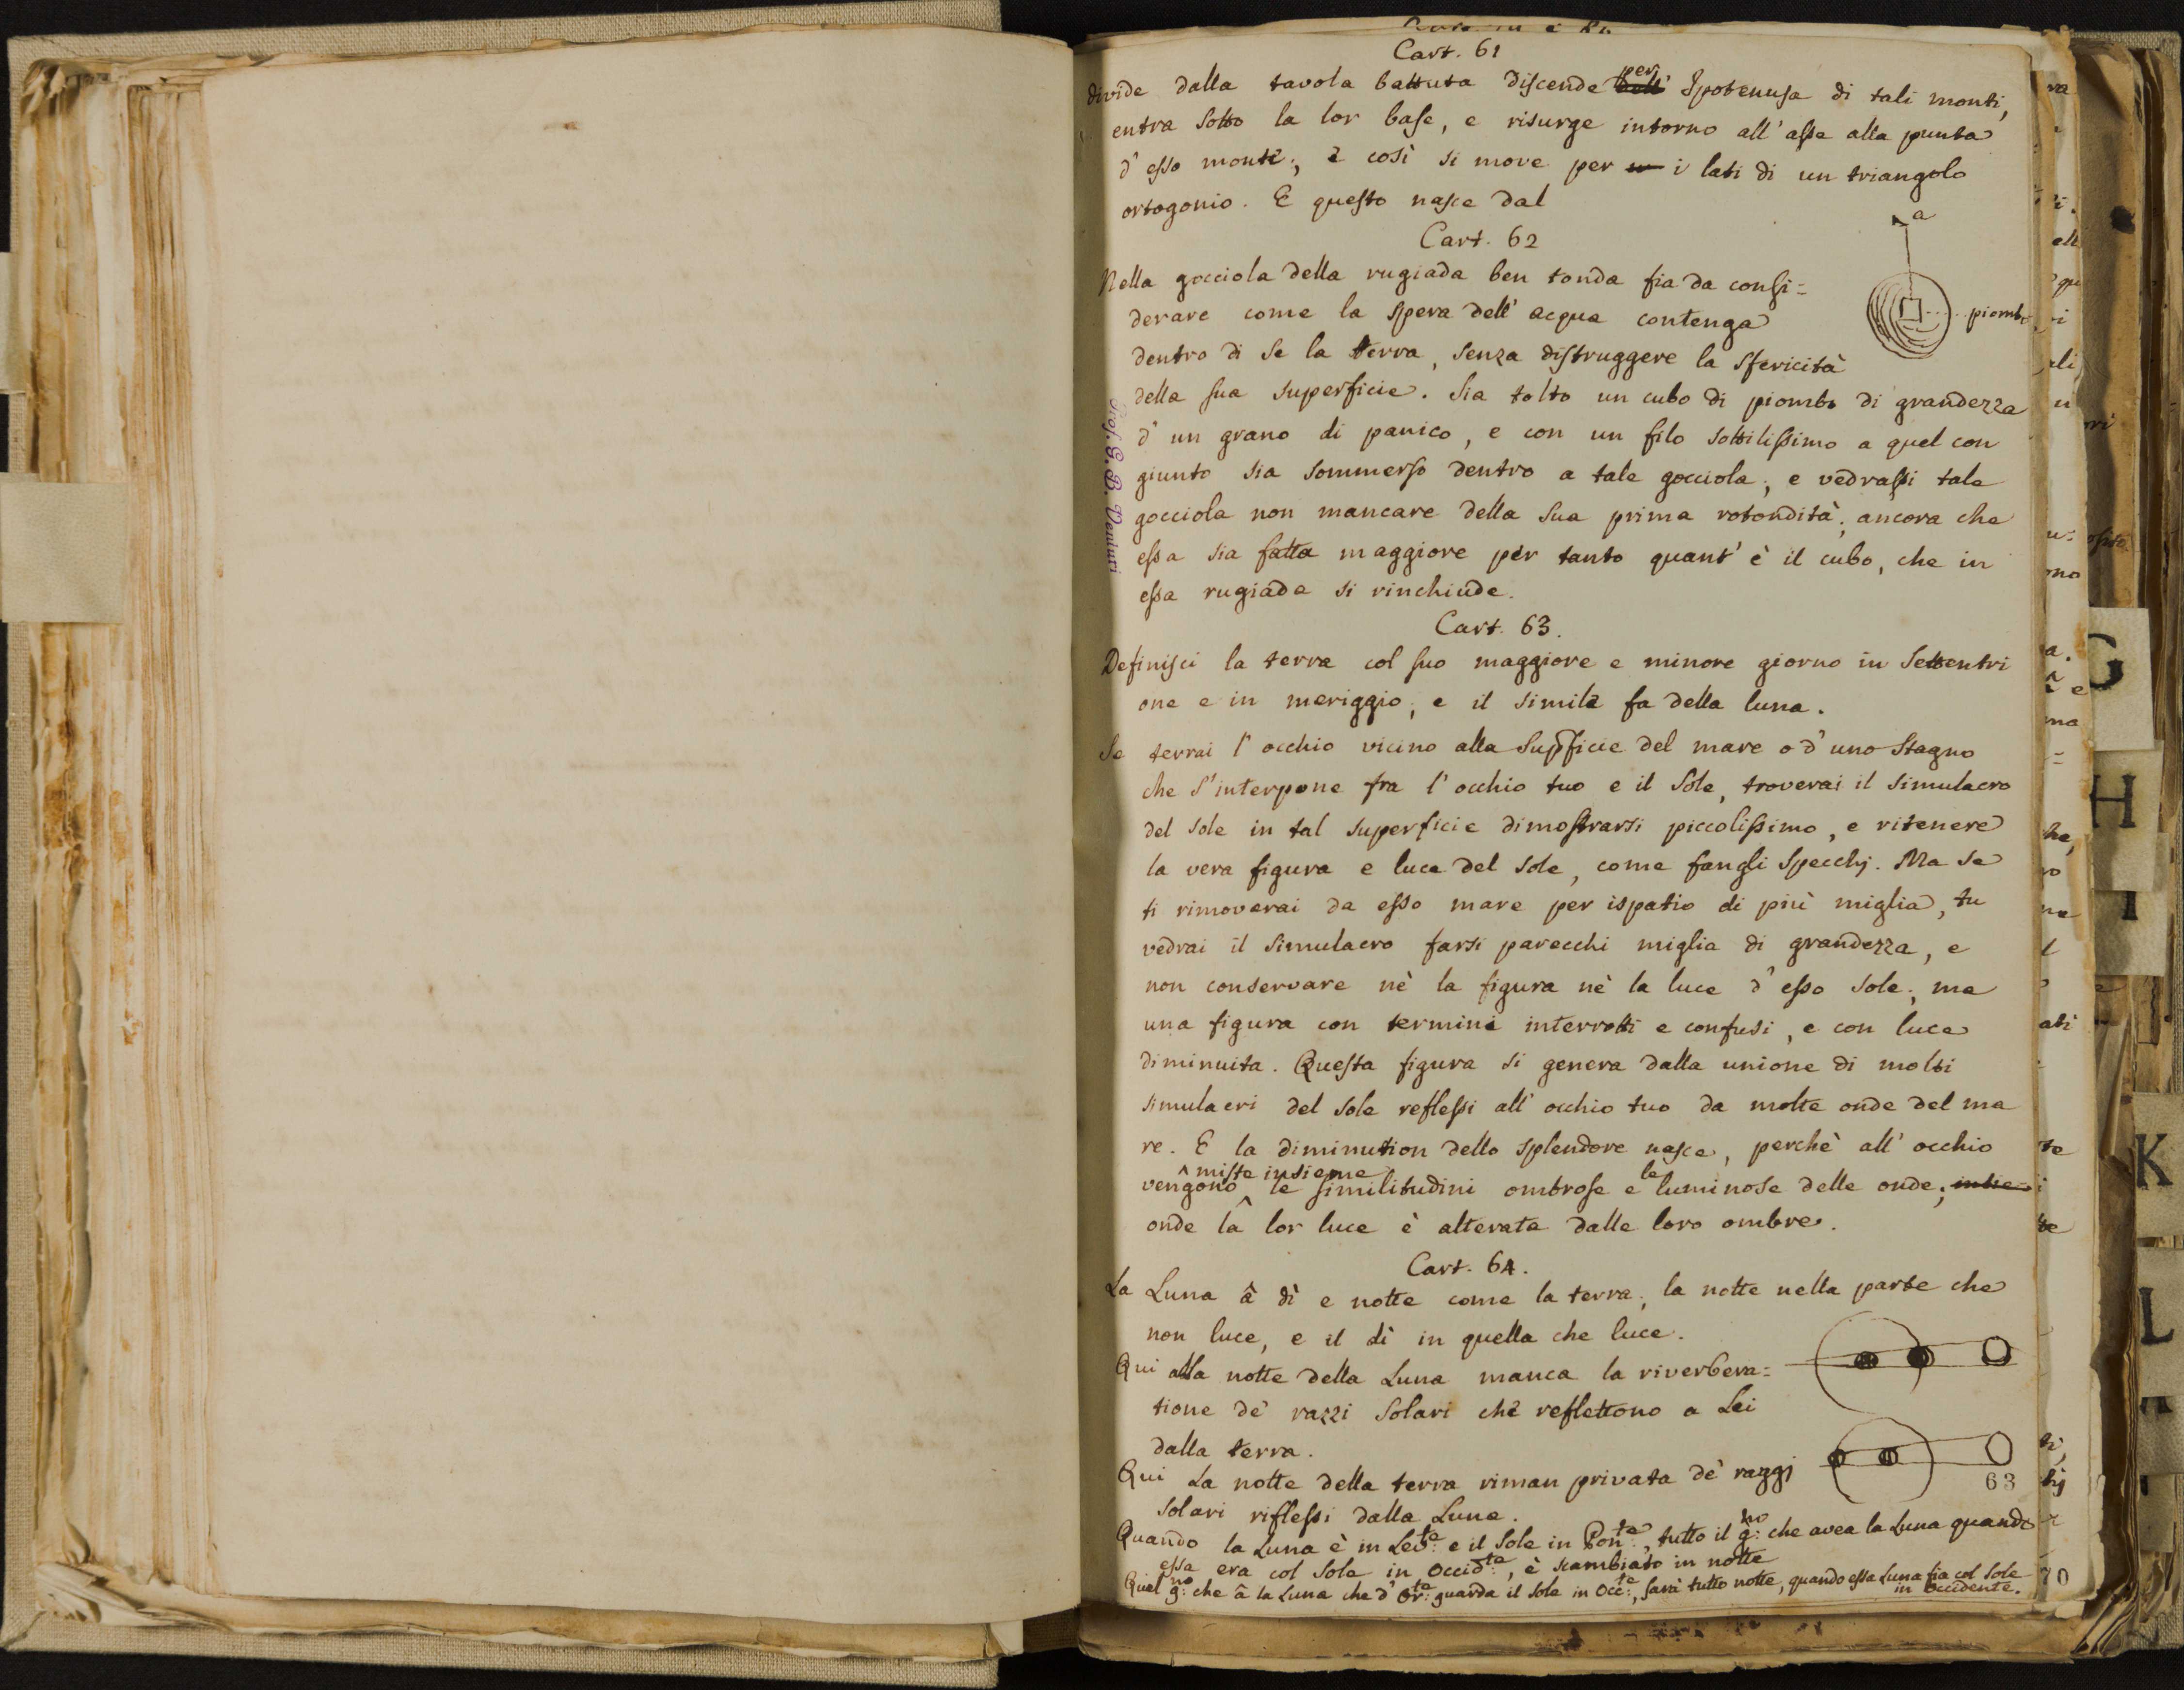 Cart. 61
divide dalla tavola battuta discende per Ipotenusa di tali monti,
entra sotto la lor base, e risurge intorno all' asse alla punta
d' esso monte; e così si move per i lati di un triangolo
ortogonio. E questo nasce dal
a
Cart. 62
Nella gocciola della rugiada ben tonda fia da consi=
derare come la spera dell' acqua contenga
piombo
dentro di se la terra, senza distruggere la sfericità
della sua superficie. Sia tolto un cubo di piombo di grandezza
d' un grano di panico, e con un filo sottilissimo a quel con
giunto sia sommerso dentro a tale gocciola; e vedrassi tale
gocciola non mancare della sua prima rotondità; ancora che
essa sia fatta maggiore per tanto quant' è il cubo, che in
essa rugiada si rinchiude.
Prof. G. B. Venturi
Cart. 63.
Definisci la terra col suo maggiore e minore giorno in Settentri
one e in meriggio; e il simile fa della luna.
Se terrai l' occhio vicino alla Supficie del mare o d' uno Stagno
che s' interpone fra l' occhio tuo e il Sole, troverai il simulacro
del sole in tal superficie dimostrarsi piccolissimo, e ritenere
la vera figura e luce del sole, come fan gli Specchj. Ma se
ti rimoverai da esso mare per ispatio di più miglia, tu
vedrai il simulacro farsi parecchi miglia di grandezza, e
non conservare nè la figura nè la luce d' esso sole; ma
una figura con termini interrotti e confusi, e con luce
diminuita. Questa figura si genera dalla unione di molti
simulacri del sole reflessi all' occhio tuo da molte onde del ma
re. E la diminution dello splendore nasce, perchè all' occhio
vengono miste insieme le similitudini ombrose e le luminose delle onde;
onde la lor luce è alterata dalle loro ombre.
Cart. 64.
La Luna â dì e notte come la terra; la notte nella parte che
non luce, e il dì in quella che luce.
Qui alla notte della Luna manca la riverbera=
tione de' razzi Solari che reflettono a Lei
dalla terra.
Qui La notte della terra riman privata de' raggj
solari riflessi dalla Luna.
63
Quando la Luna è in Lev:te e il Sole in Pon:te, tutto il g:no che avea la Luna quando
essa era col Sole in Occid:te, è scambiato in notte
Quel g:no che â la Luna che d' Or:te guarda il Sole in Occ:te, sarà tutto notte, quando essa Luna fia col Sole
in Occidente.
70
G
H
I
K
L